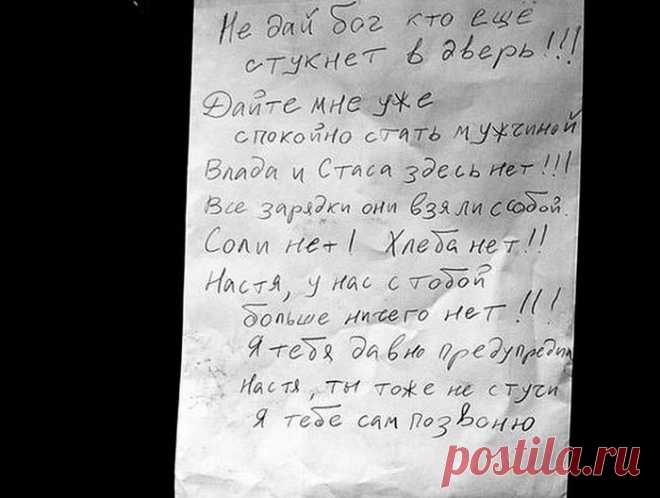 Не дай бог кто ещё
стукнет в дверь!!!
Дайте мне уже
спокойно стать мужчиной
Влада и Стаса здесь нет!!!
Все зарядки они взяли с собой.
Соли нет! Хлеба нет!!
Настя, у нас с тобой
больше ничего нет!!!
Я тебя давно предупредил
Настя, ты тоже не стучи
Я тебе сам позвоню
postila.ru